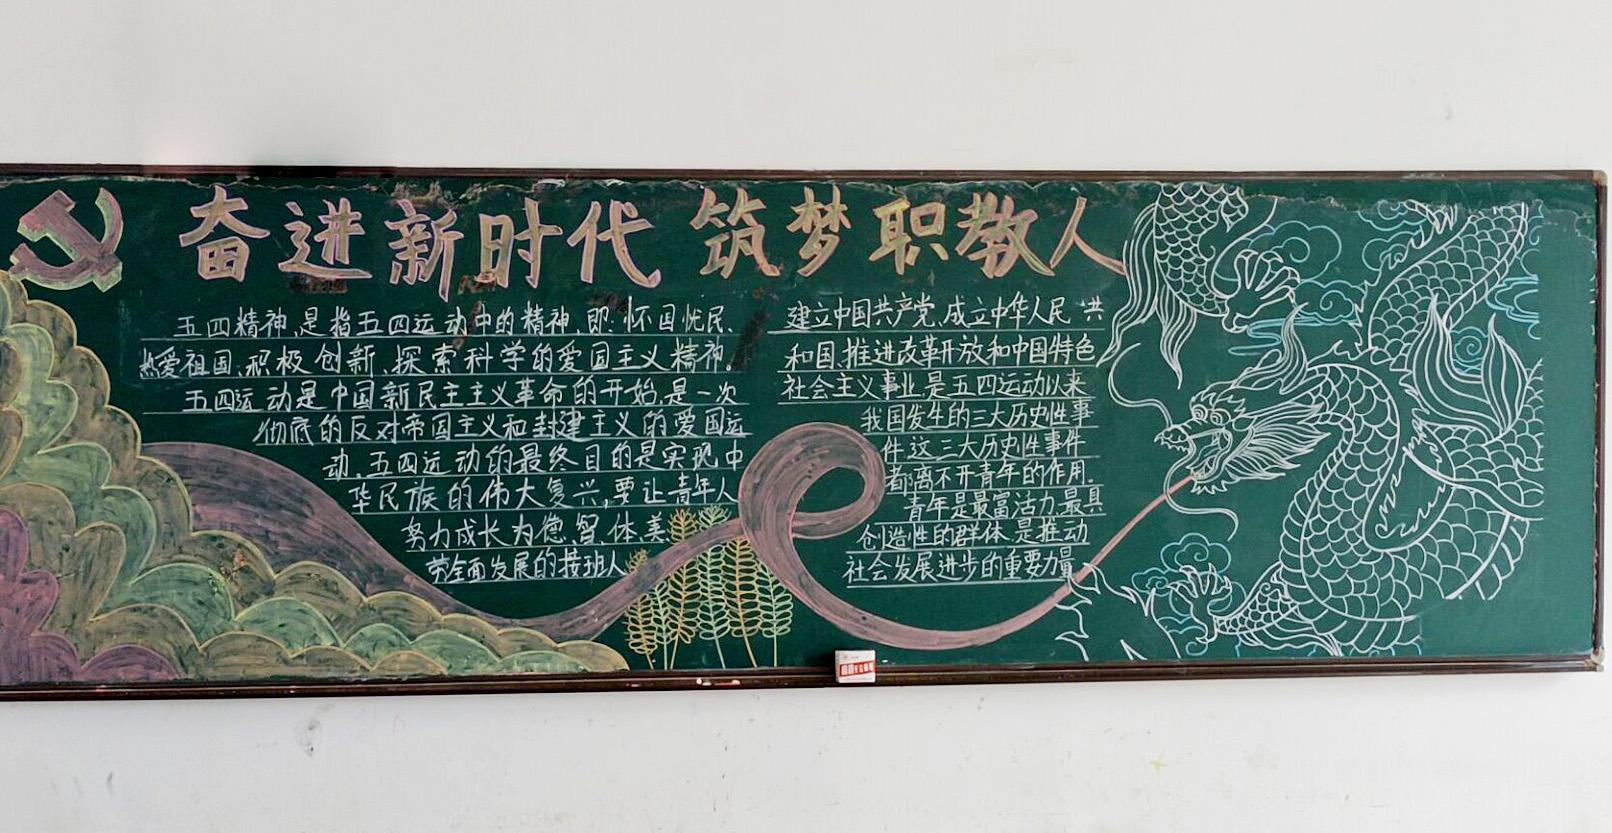 奋进新时代 筑梦职教人
五四精神,是指五四运动中的精神,即:怀国忧民、
热爱祖国,积极创新,探索科学的爱国主义精神。
五四运动是中国新民主主义革命的开始,是一次
彻底的反对帝国主义和封建主义的爱国运
动,五四运动的最终目的是实现中
华民族的伟大复兴,要让青年人
努力成长为德、智、体、美、
劳全面发展的接班人
建立中国共产党、成立中华人民共
和国、推进改革开放和中国特色
社会主义事业,是五四运动以来
我国发生的三大历史性事
件,这三大历史性事件
都离不开青年的作用。
青年是最富活力、最具
创造性的群体,是推动
社会发展进步的重要力量